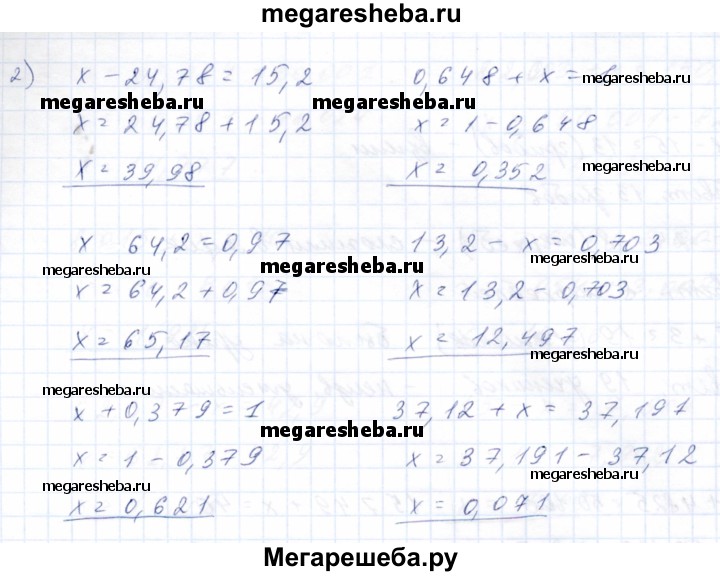 megaresheba.ru
2) x - 24,78 = 15,2
0,648 + x =
megaresheba.ru
megaresheba.ru megaresheba.ru
x = 24,78 + 15,2
x = 1 - 0,648
x = 39,98
x = 0,352
megaresheba.ru
x 64,2 = 0,97
13,2 - x = 0,703
megaresheba.ru megaresheba.ru megaresheba.ru
x = 64,2 + 0,97
x = 13,2 - 0,703
x = 65,17
x = 12,497
megaresheba.ru
megaresheba.ru
x + 0,379 = 1
37,12 + x = 37,191
megaresheba.ru
x = 1 - 0,379
x = 37,191 - 37,12
megaresheba.ru megaresheba.ru
x = 0,621
x = 0,071
megaresheba.ru
Мегарешеба.ру